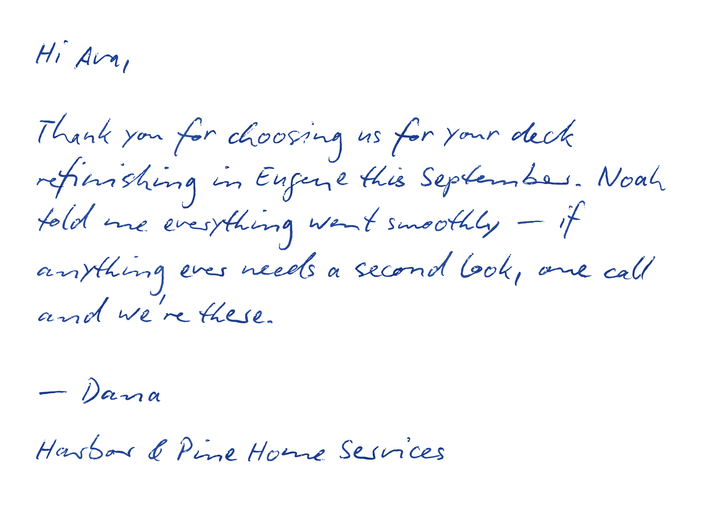 Hi Ava,
Thank you for choosing us for your deck
refinishing in Eugene this September. Noah
told me everything went smoothly — if
anything ever needs a second look, one call
and we're there.
— Dana
Harbor & Pine Home Services